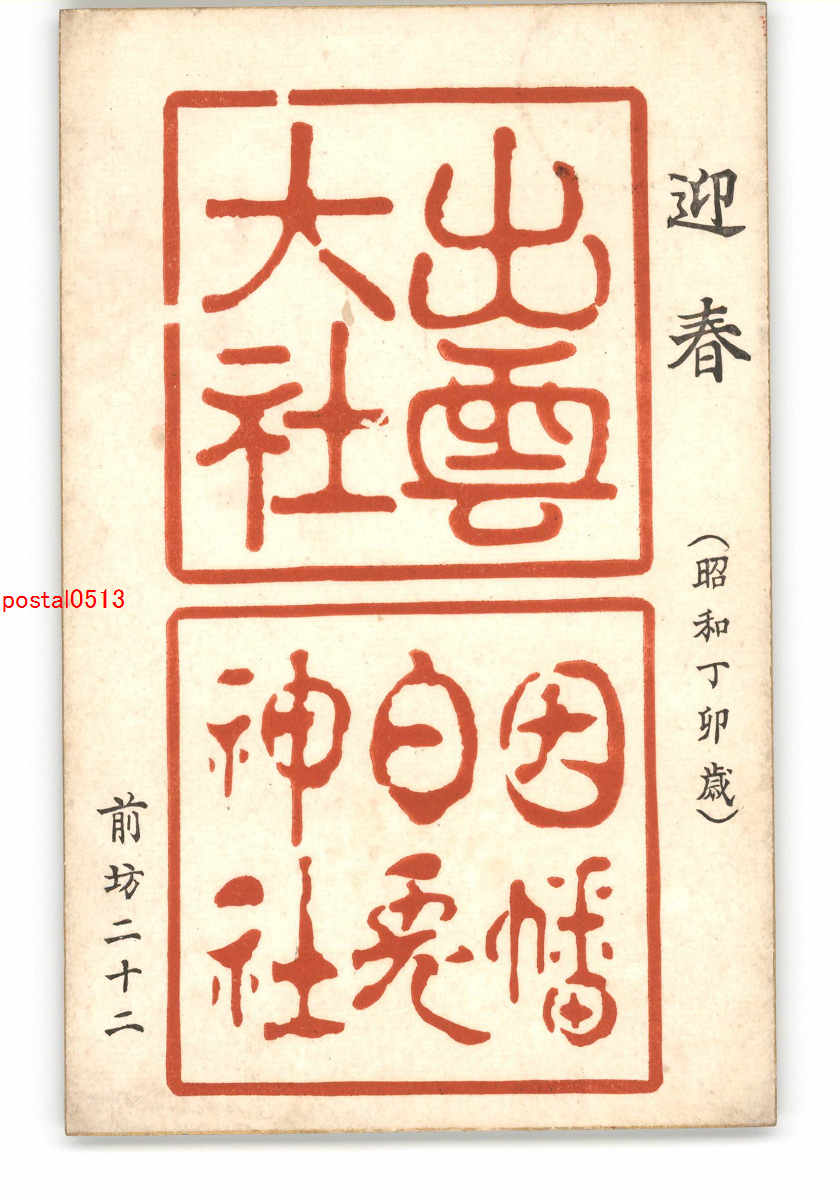 迎春
(昭和丁卯歳)
出雲
大社
因幡
白兎
神社
前坊二十二
postal0513